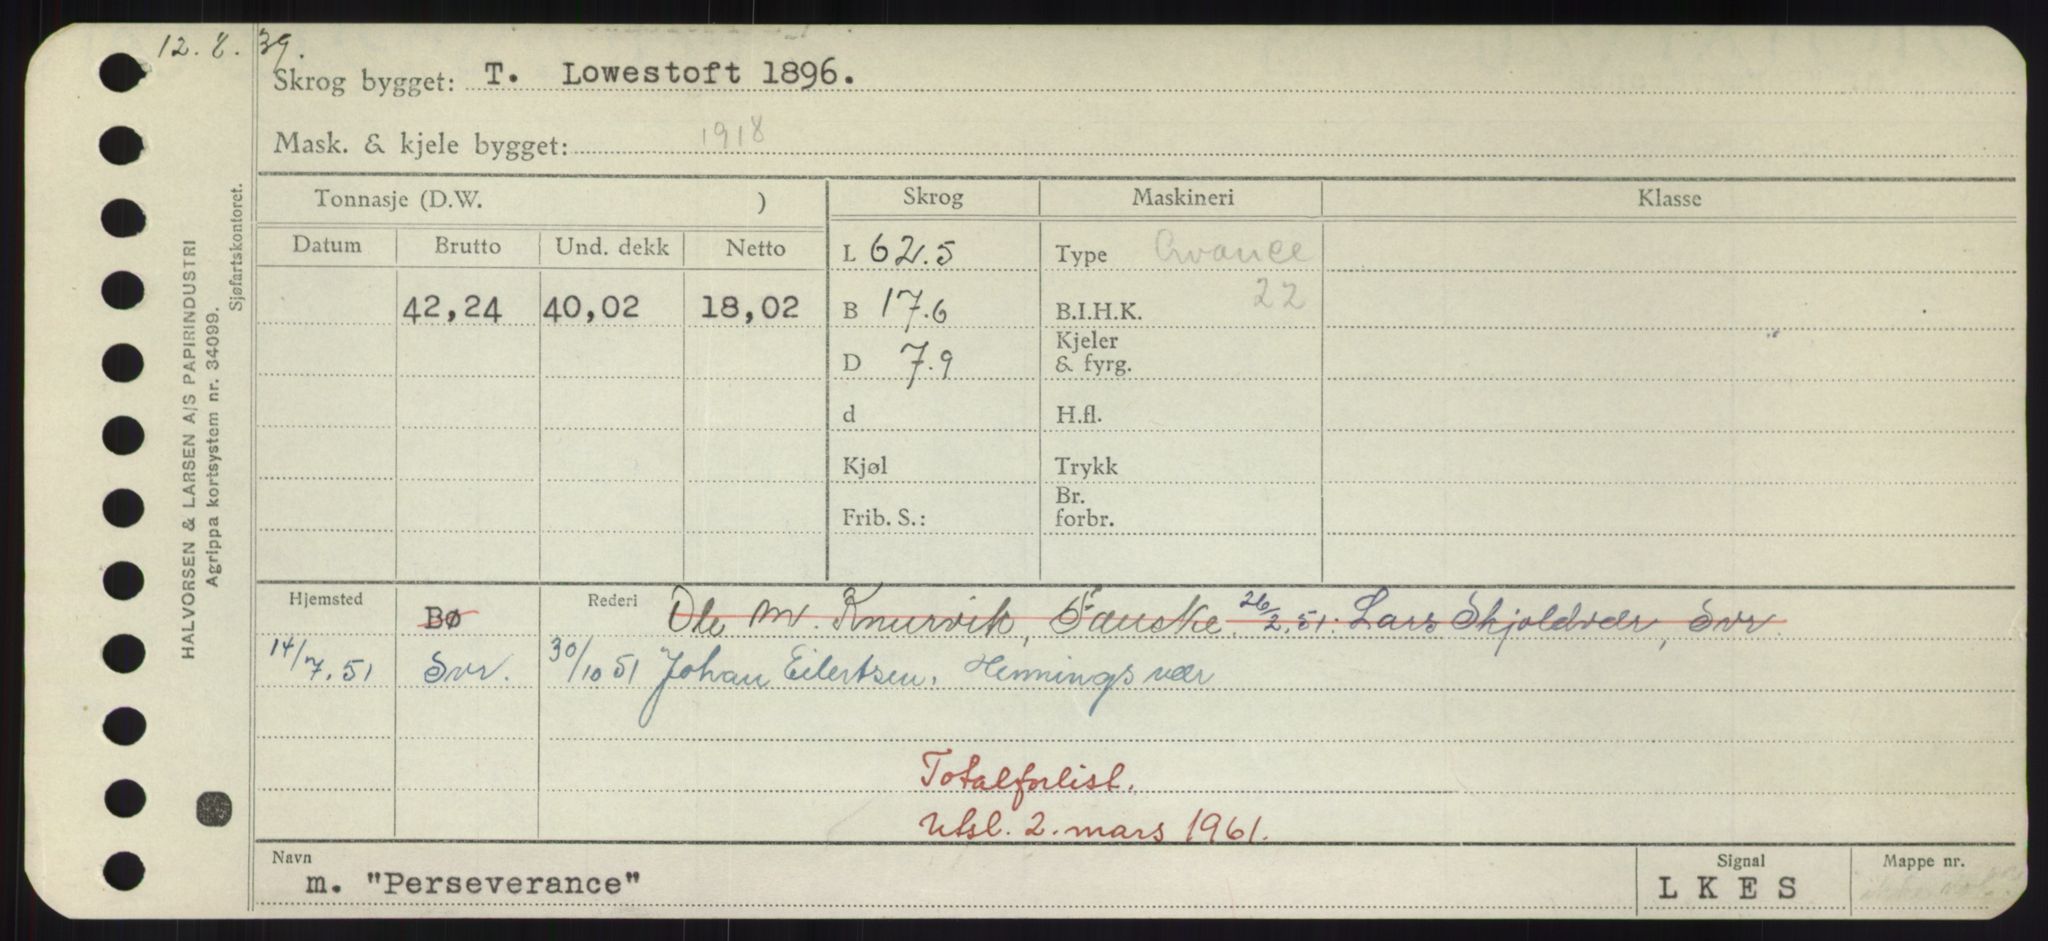 12. 8. 39.
Skrog bygget: T. Lowestoft 1896.
Mask. & kjele bygget: 1918
Tonnasje (D.W. ) Skrog Maskineri Klasse
Datum Brutto Und. dekk Netto L 62.5 Type Avance
42,24 40,02 18,02 B 17.6 B.I.H.K. 22
D 7.9 Kjeler & fyrg.
d H.fl.
Kjøl Trykk
Frib. S.: Br. forbr.
Hjemsted Rederi
Bø Ole M. Knurvik, Fauske. 26/2.51. Lars Skjoldvær, Svr.
14/7.51 Svr. 30/10 51 Johan Eilertsen, Henningsvær
Totalforlist.
Utsl. 2. mars 1961.
Navn Signal Mappe nr.
m. "Perseverance" LKES
HALVORSEN & LARSEN A/S PAPIRINDUSTRI
Agrippa kortsystem nr. 34099.
Sjøfartskontoret.